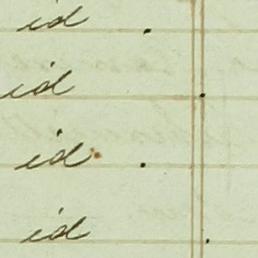 id .
id .
id .
id .